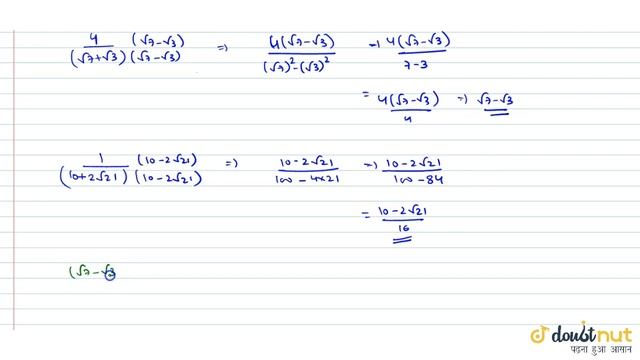 4 (√7 − √3) / (√7 + √3) (√7 − √3) ⇒ 4(√7 − √3) / (√7)² − (√3)² → 4(√7 − √3) / 7 − 3
= 4(√7 − √3) / 4 ⇒ √7 − √3
1 (10 − 2√21) / (10 + 2√21) (10 − 2√21) ⇒ 10 − 2√21 / 100 − 4×21 → 10 − 2√21 / 100 − 84
= 10 − 2√21 / 16
(√7 − √3
doubtnut
पढ़ना हुआ आसान